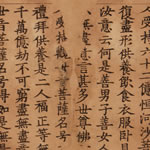 人受持六十二億恒河沙
復盡形供養飲食衣服卧
汝意云何是善男子善
意言甚多世尊佛
受持觀菩薩名号
禮拜供養是二人福正等
千萬億劫不可窮盡無